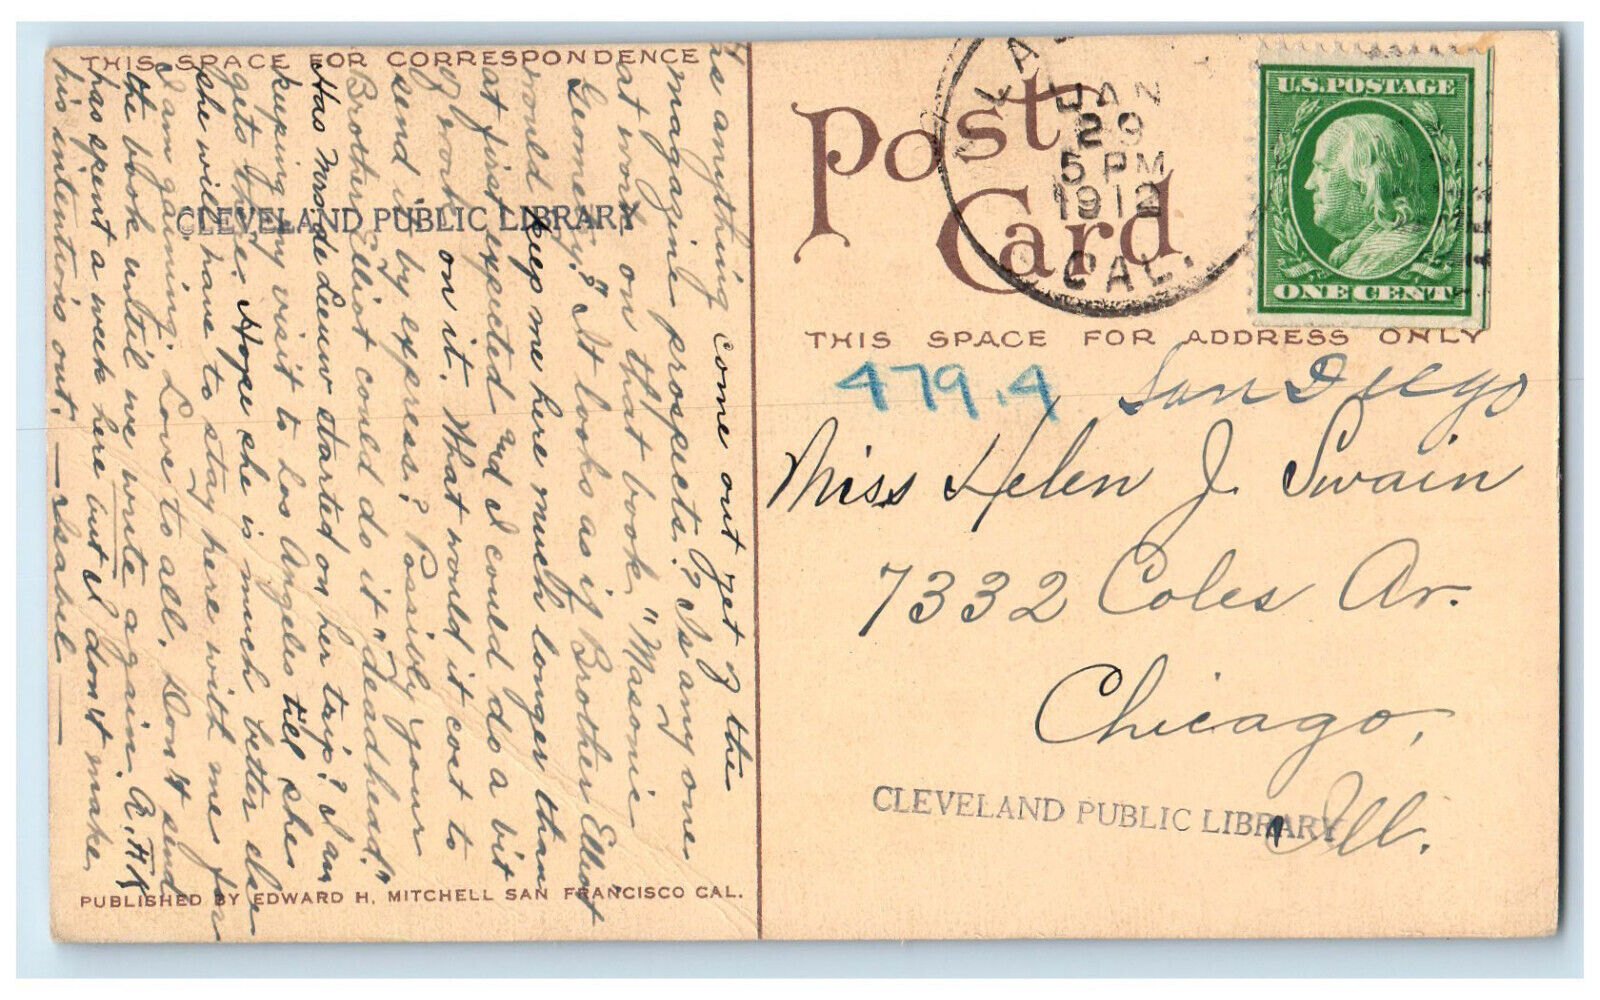 THIS SPACE FOR CORRESPONDENCE
Is anything come out yet of the
magazine prospects? Is any one
at work on that book, "Masonic
Geometry?" It looks as if Brother Elliot
would keep me here much longer than
at first expected and I could do a bit
of work on it. What would it cost to
send it by express? Possibly your
Brother Elliot could do it "deadhead."
Has started on her trip? I am
keeping my visit to Los Angeles till she
gets there. Hope she is much better else
she will have to stay here with me for
I am gaining. Love to all. Don't send
the book until we write again. A.F.K
has spent a week here but I don't make
his intentions out. — Isabel —
CLEVELAND PUBLIC LIBRARY
PUBLISHED BY EDWARD H. MITCHELL SAN FRANCISCO CAL.
Post
Card
JAN
29
5 PM
1912
CAL.
U.S. POSTAGE
ONE CENT
THIS SPACE FOR ADDRESS ONLY
479.4 San Diego
Miss Helen J. Swain
7332 Coles Av.
Chicago,
Ill.
CLEVELAND PUBLIC LIBRARY